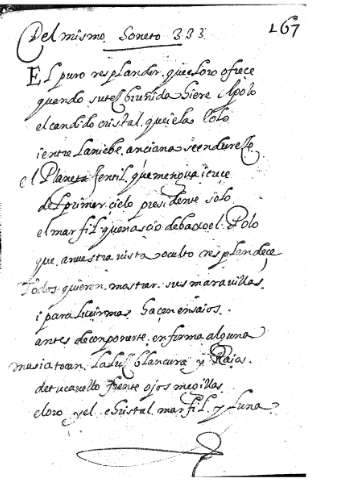 167
Del mismo Soneto 333
El puro resplandor. que el oro ofrece
quando su tez bruñida hiere Apolo
el candido cristal. que iela
i entre la niebe. anciana se endurece
el Planeta gentil. que mengua i crece
del primer cielo presidente solo
el marfil que nascio debaxo el Polo
que. a nuestra vista oculto resplandece
Todos quieren mostrar. sus maravillas.
i para lucir mas haçen ensaios.
antes de componerte. en forma alguna
la luz blancura y Raios.
de tu cavello frente ojos mexillas
el oro y el christal marfil y Luna